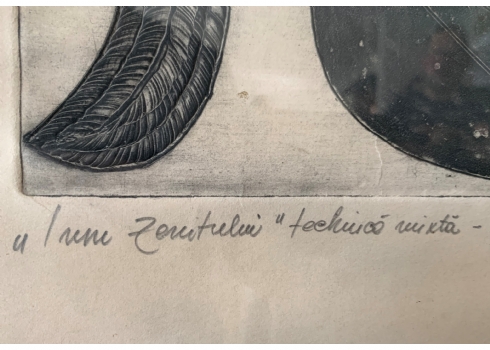 „Imn Zenitului" tehnică mixtă -